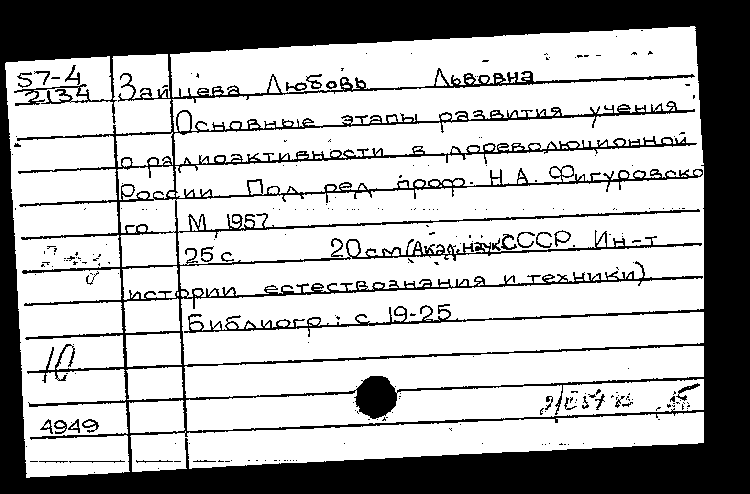 57-4
2134
Зайцева, Любовь Львовна
Основные этапы развития учения
о радиоактивности в дореволюционной
России Под ред. проф. Н.А. Фигуровско
го М, 1957.
25 с. 20 см (Акад. наук СССР. Ин-т
истории естествознания и техники)
Библиогр.: с 19-25.
10
4949